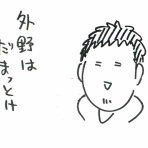 外野は
だまっとけ